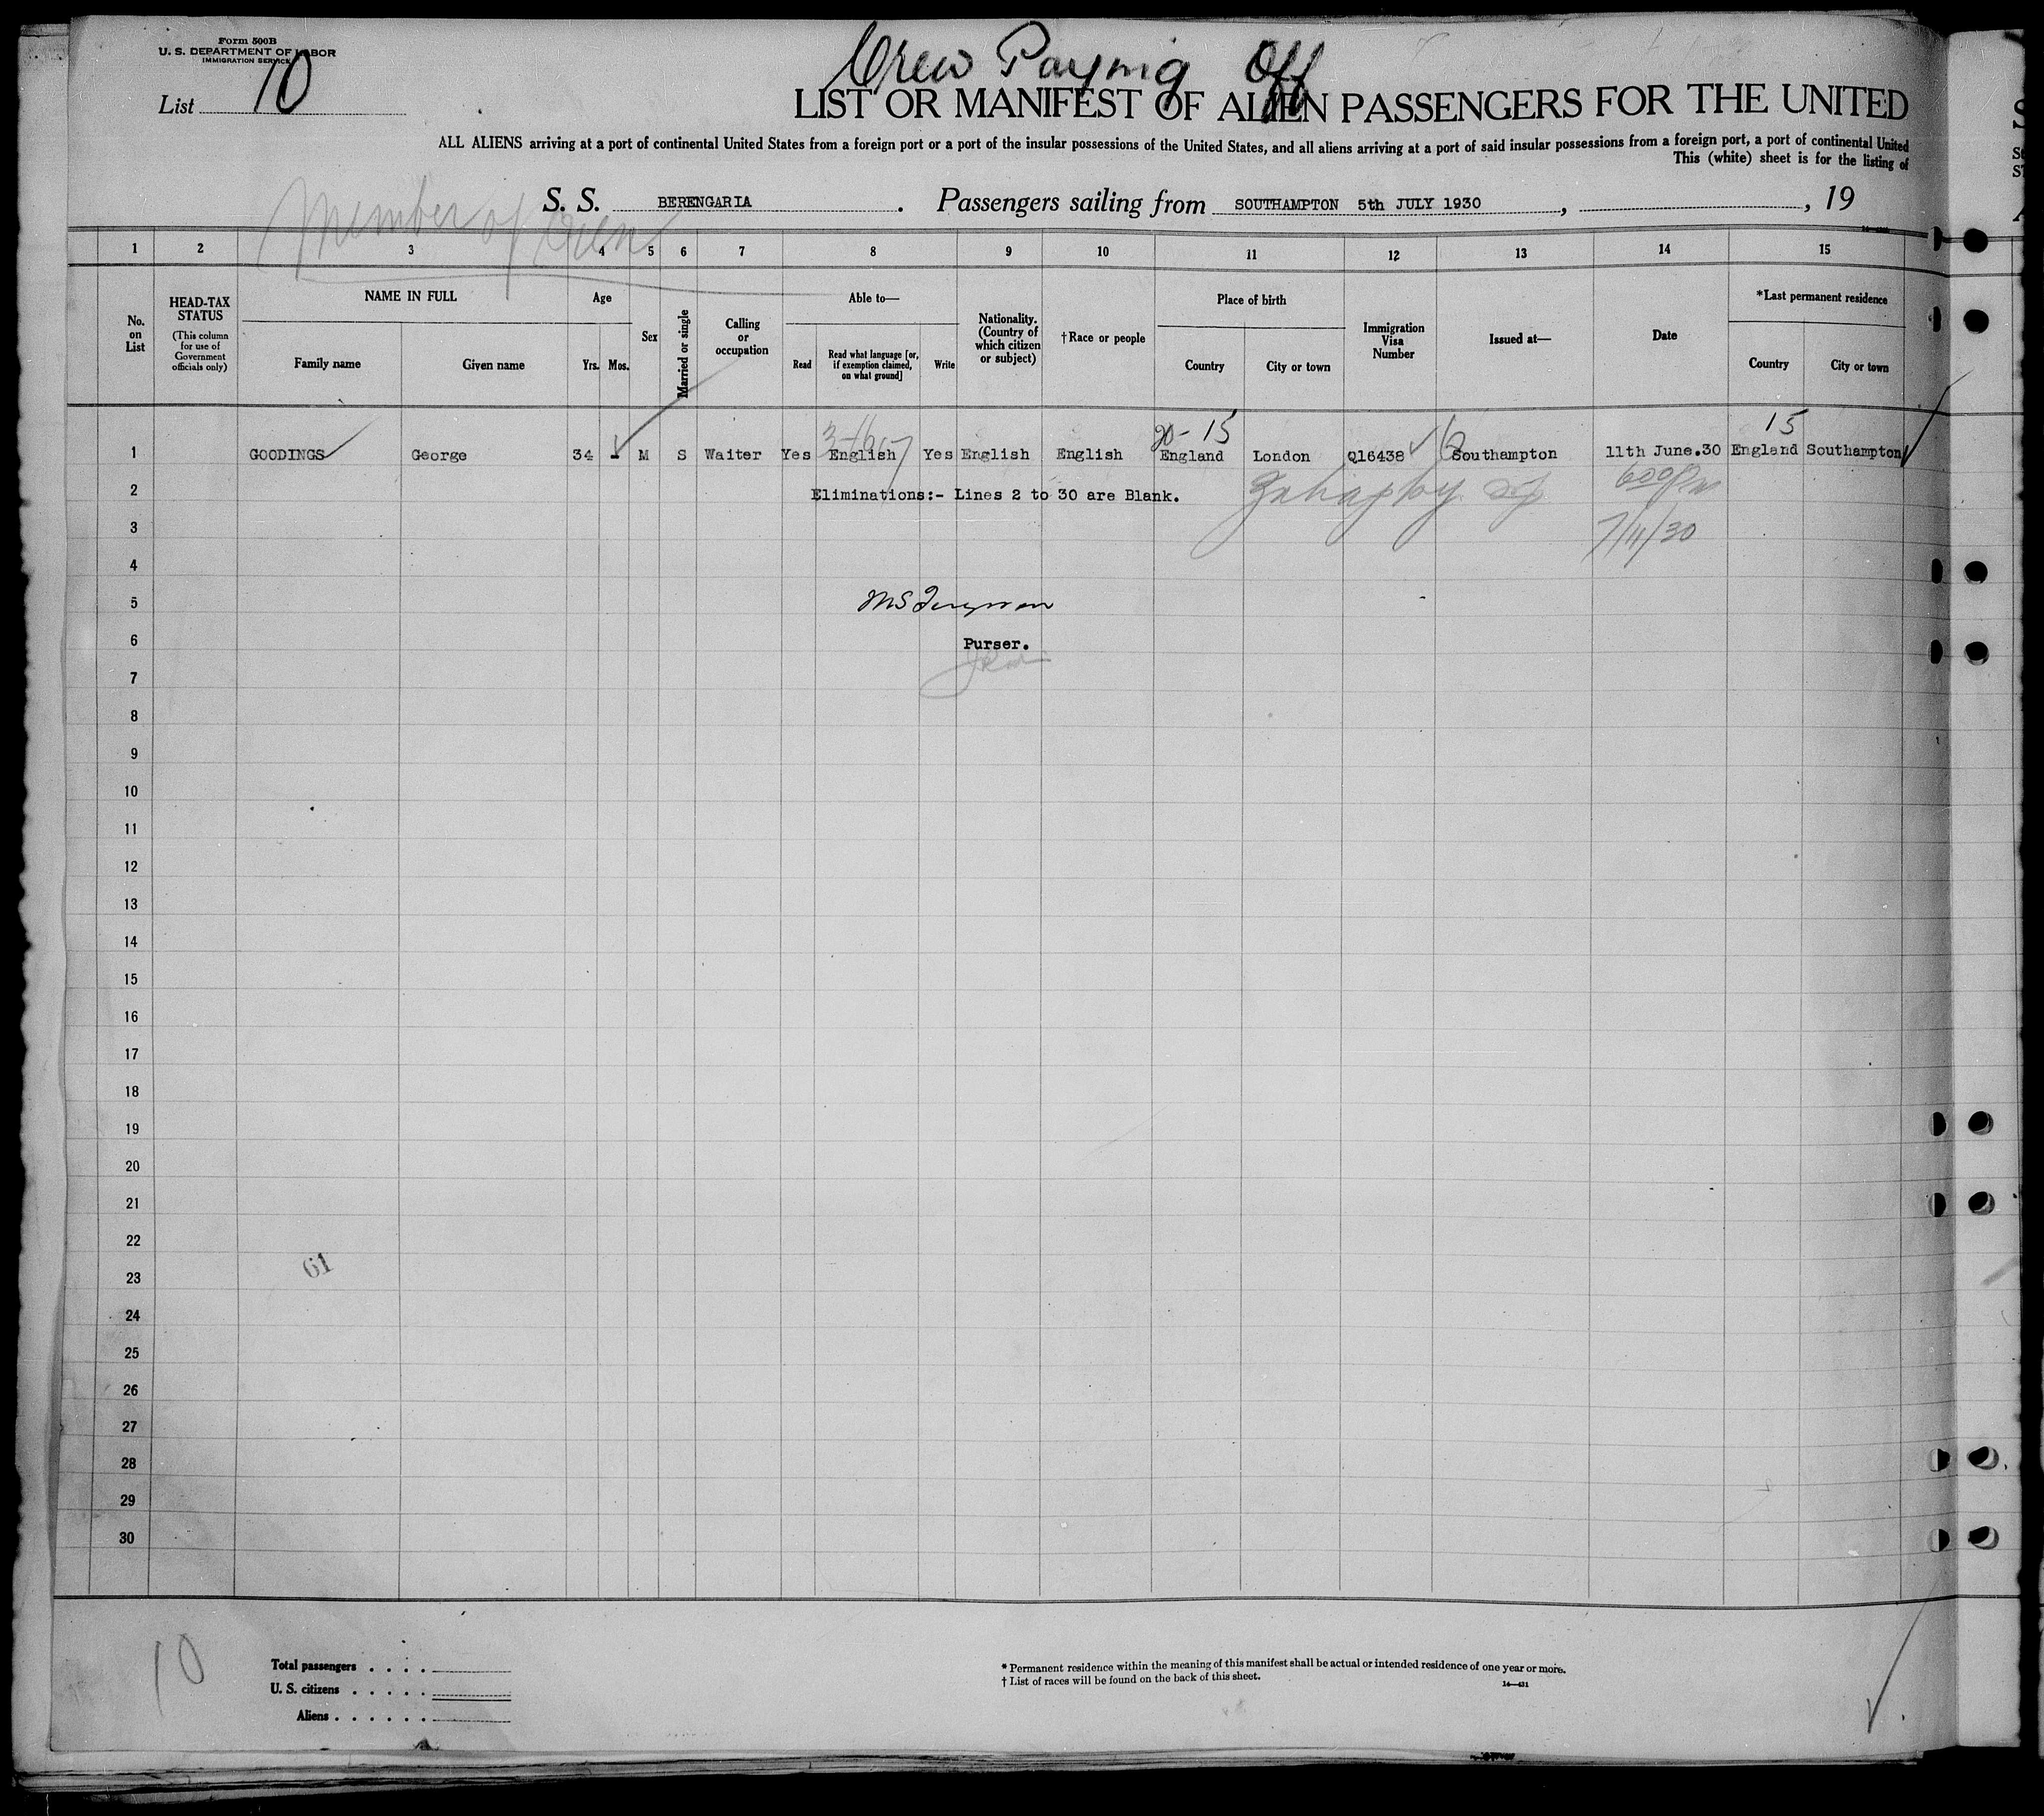 Form 500B
U. S. DEPARTMENT OF LABOR
IMMIGRATION SERVICE
List 10
Crew Paying Off
LIST OR MANIFEST OF ALIEN PASSENGERS FOR THE UNITED
ALL ALIENS arriving at a port of continental United States from a foreign port or a port of the insular possessions of the United States, and all aliens arriving at a port of said insular possessions from a foreign port, a port of continental United
This (white) sheet is for the listing of
Member of Crew
S. S. BERENGARIA . Passengers sailing from SOUTHAMPTON 5th JULY 1930 , , 19
1 2 3 4 5 6 7 8 9 10 11 12 13 14 15
No. on List
HEAD-TAX STATUS
(This column for use of Government officials only)
NAME IN FULL
Family name Given name
Age
Yrs. Mos.
Sex
Married or single
Calling or occupation
Able to—
Read
Read what language [or, if exemption claimed, on what ground]
Write
Nationality. (Country of which citizen or subject)
†Race or people
Place of birth
Country City or town
Immigration Visa Number
Issued at—
Date
*Last permanent residence
Country City or town
20-15 15
1 GOODINGS George 34 - M S Waiter Yes English Yes English English England London Q16438 Southampton 11th June.30 England Southampton
2 Eliminations:- Lines 2 to 30 are Blank.
3 7/11/30
4
5
6 Purser.
7
8
9
10
11
12
13
14
15
16
17
18
19
20
21
22
61
23
24
25
26
27
28
29
30
10
Total passengers . . . .
U. S. citizens . . . . .
Aliens . . . . . .
* Permanent residence within the meaning of this manifest shall be actual or intended residence of one year or more.
† List of races will be found on the back of this sheet.
14—431